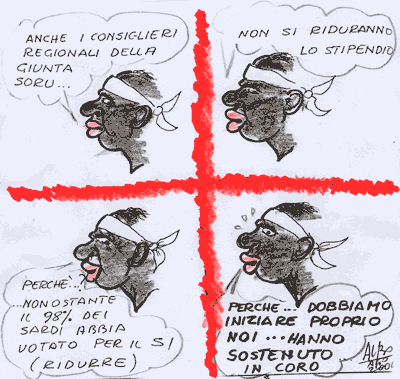 ANCHE I CONSIGLIERI
REGIONALI DELLA
GIUNTA
SORU...
NON SI RIDURANNO
LO STIPENDIO
PERCHÈ..?
...NONOSTANTE
IL 98% DEI
SARDI ABBIA
VOTATO PER IL SI
(RIDURRE)
PERCHE... DOBBIAMO
INIZIARE PROPRIO
NOI... HANNO
SOSTENUTO
IN CORO